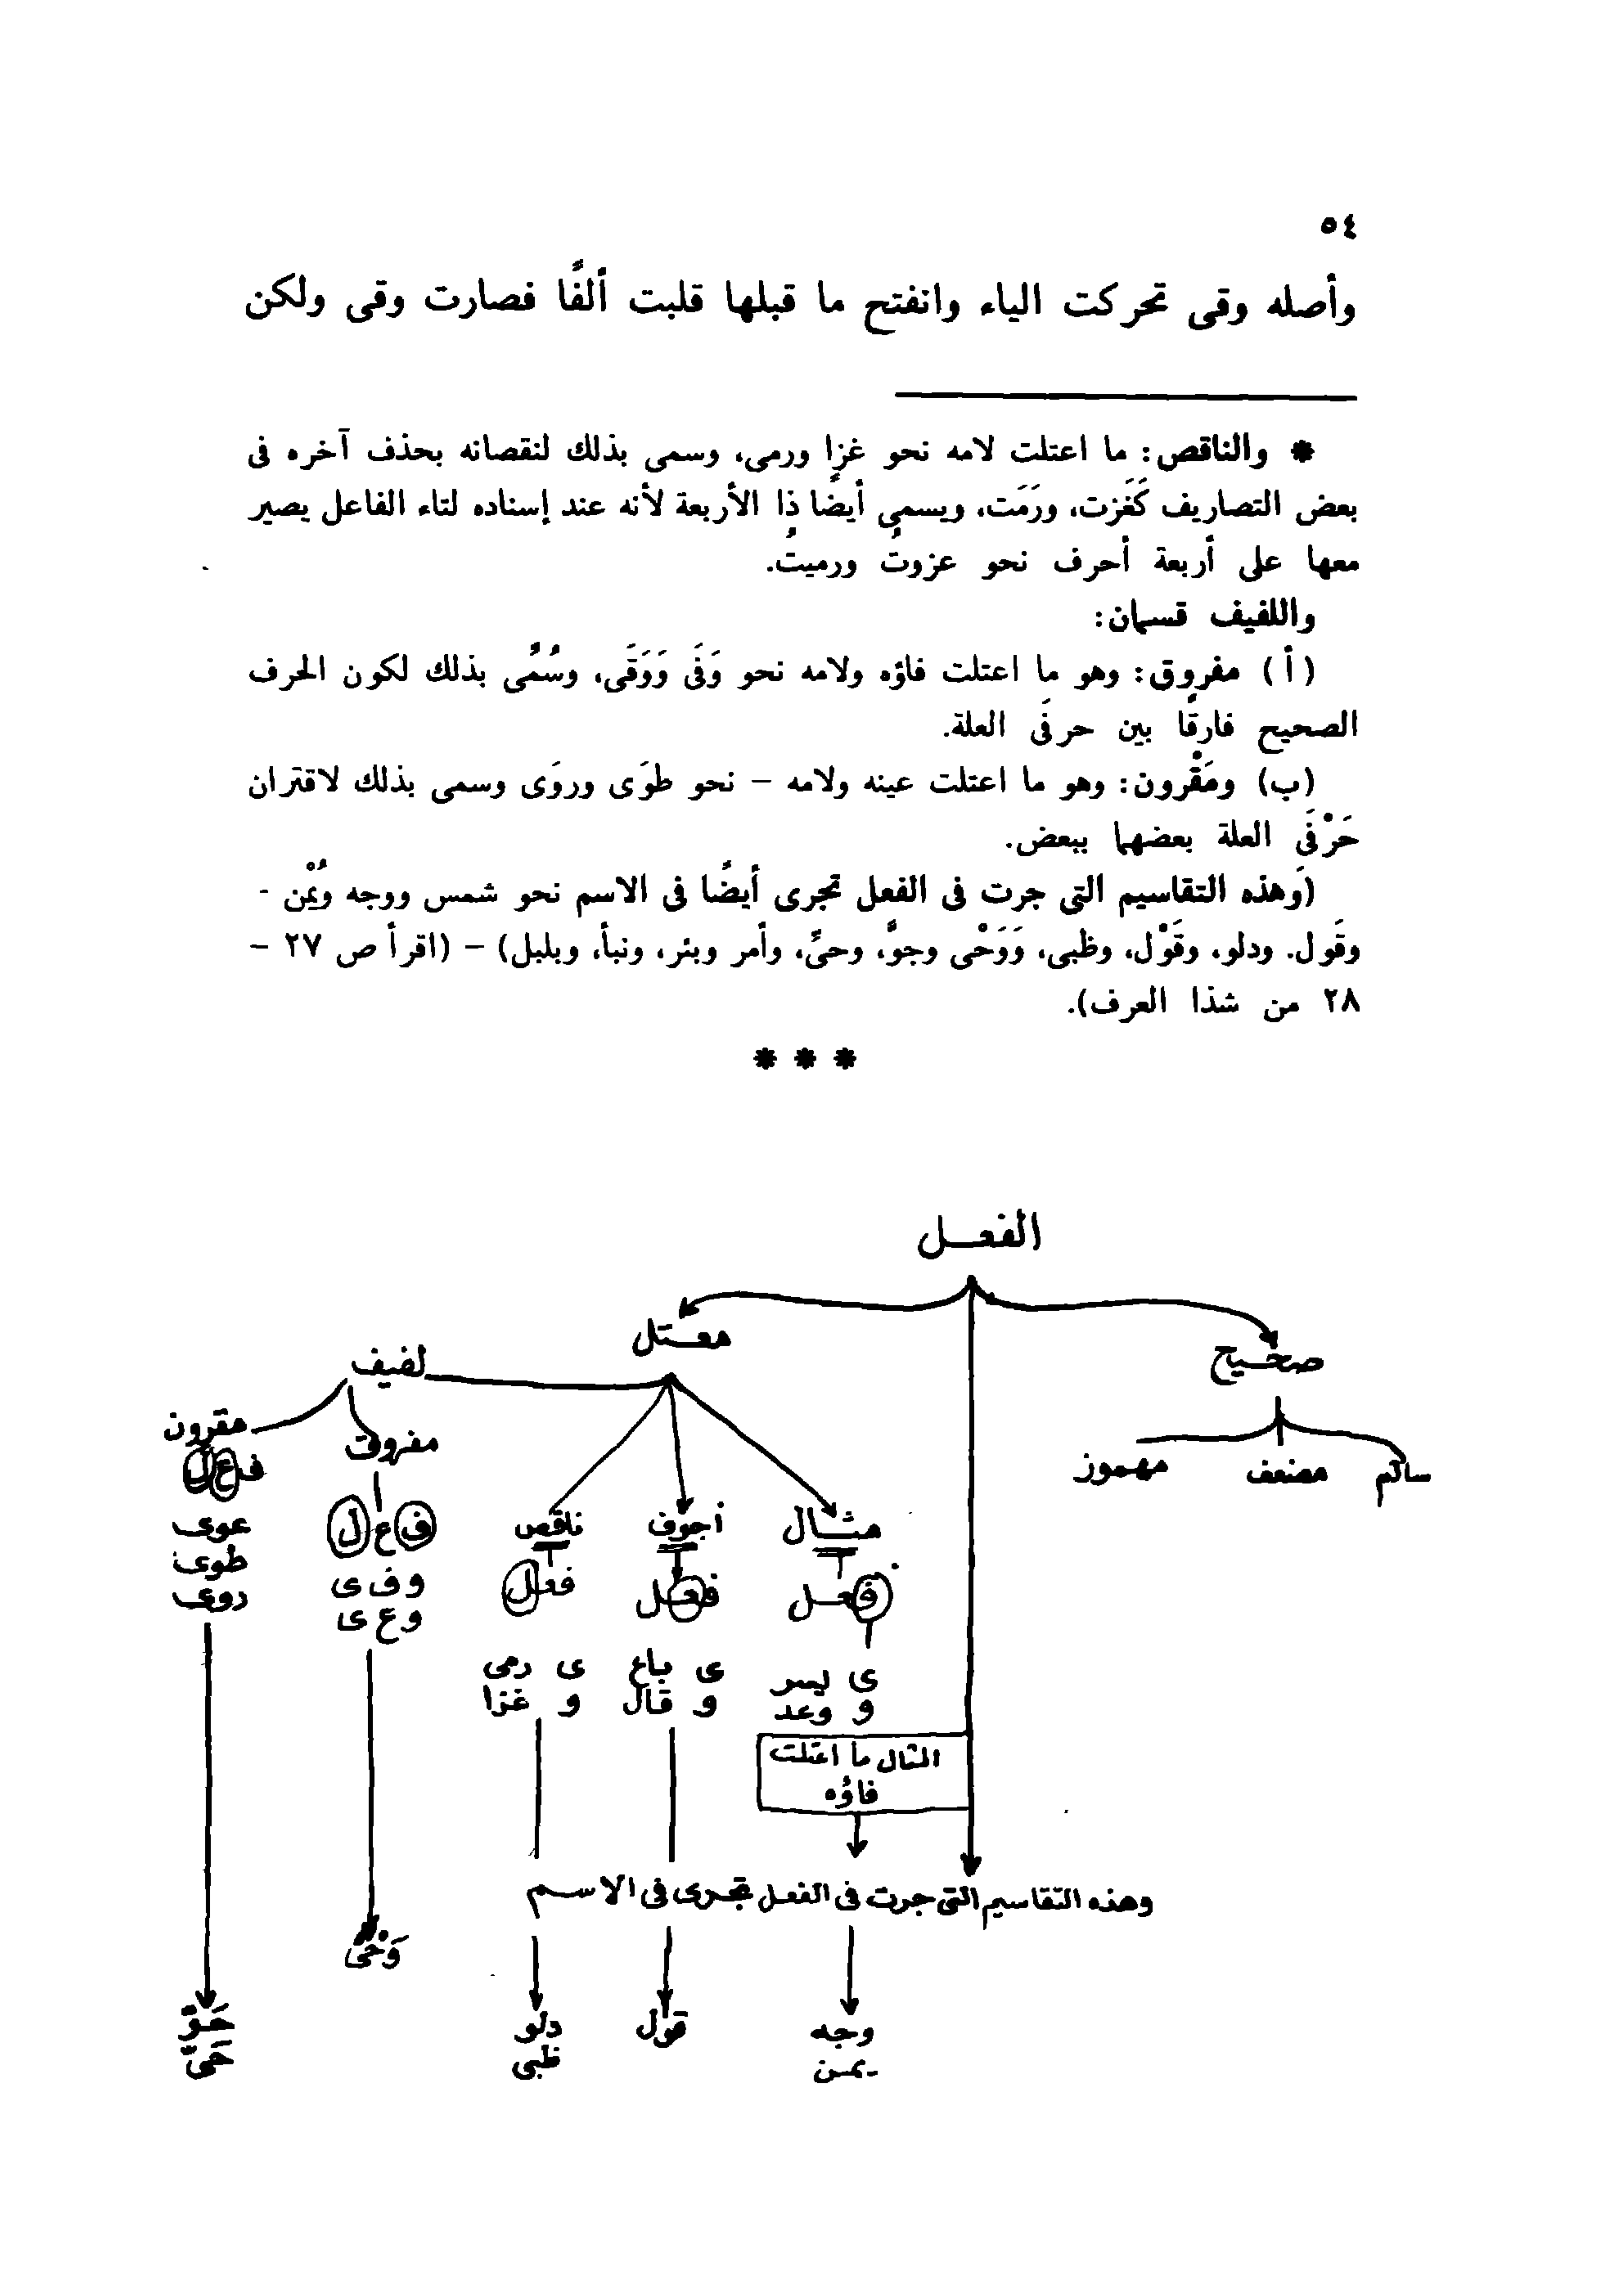 ٥٤
وأصله وقى تحركت الياء وانفتح ما قبلها قلبت ألفًا فصارت وقى ولكن
* والناقص: ما اعتلت لامه نحو غزا ورمى، وسمى بذلك لنقصانه بحذف آخره فى
بعض التصاريف كَغَزت، ورَمَت، ويسمى أيضًا ذا الأربعة لأنه عند إسناده لتاء الفاعل يصير
معها على أربعة أحرف نحو عزوتُ ورميتُ.
واللفيف قسمان:
(أ) مفروق: وهو ما اعتلت فاؤه ولامه نحو وَفَى وَوَقَى، وسُمِّى بذلك لكون الحرف
الصحيح فارقًا بين حرفَى العلة.
(ب) ومَقْرون: وهو ما اعتلت عينه ولامه – نحو طوَى وروَى وسمى بذلك لاقتران
حَرْفَى العلة بعضهما ببعض.
(وَهذه التقاسيم التى جرت فى الفعل تجرى أيضًا فى الاسم نحو شمس ووجه ويُمْن -
وقَول. ودلو، وقَوْل، وظبى، وَوَحْى وجوٍّ، وحىٍّ، وأمر وبئر، ونبأ، وبلبل) – (اقرأ ص ٢٧ –
٢٨ من شذا العرف).
* * *
الفعـــل
صحـيح
معـتل
لفيف
سالم
مضعف
مهموز
مثـــال
أجوف
ناقص
مفروق
مقرون
فعـل
فعـل
فعـل
ف ع ل
ف ع ل
ى يسر
و وعد
ى باع
و قال
ى رمى
و غزا
و ف ى
و ع ى
عوى
طوى
روى
المثال ما اعتلت
فاؤه
وهذه التقاسيم التى جرت فى الفعل تجرى فى الاسـم
وجه
يمـن
قول
دلو
ظبى
وَحْى
جَـوّ
حَىّ